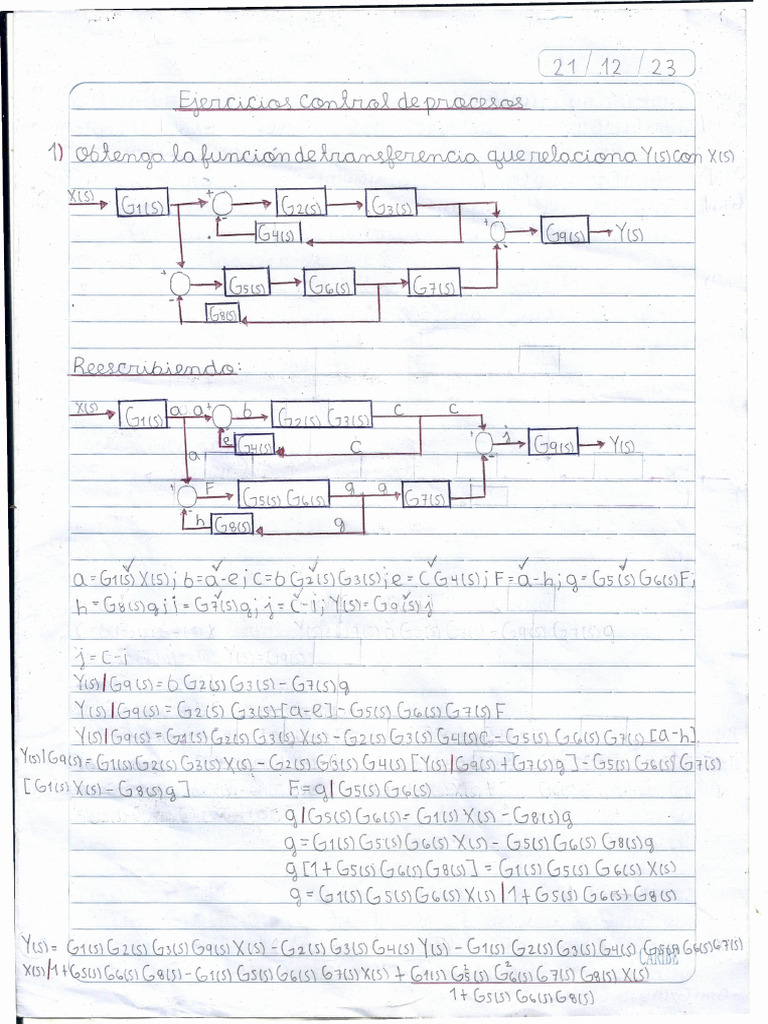 21/12/23
Ejercicios control de procesos
1) Obtenga la función de transferencia que relaciona Y(s) con X(s)
X(s) G1(s) + - G2(s) G3(s)
G4(s) + - G9(s) Y(s)
+ - G5(s) G6(s) G7(s)
G8(s)
Reescribiendo:
X(s) G1(s) a a + b G2(s) G3(s) c c
e G4(s) c + - j G9(s) Y(s)
a
+ F G5(s) G6(s) g g G7(s) i
- h G8(s) g
a = G1(s) X(s); b = a-e; c = b G2(s) G3(s); e = C G4(s); F = a-h; g = G5(s) G6(s) F;
h = G8(s) g; i = G7(s) g; j = c-i; Y(s) = G9(s) j
j = c-i
Y(s)/G9(s) = b G2(s) G3(s) - G7(s) g
Y(s)/G9(s) = G2(s) G3(s) [a-e] - G5(s) G6(s) G7(s) F
Y(s)/G9(s) = G1(s) G2(s) G3(s) X(s) - G2(s) G3(s) G4(s) C - G5(s) G6(s) G7(s) [a-h]
Y(s)/G9(s) = G1(s) G2(s) G3(s) X(s) - G2(s) G3(s) G4(s) [Y(s)/G9(s) + G7(s) g] - G5(s) G6(s) G7(s)
[G1(s) X(s) - G8(s) g] F = g/G5(s) G6(s)
g/G5(s) G6(s) = G1(s) X(s) - G8(s) g
g = G1(s) G5(s) G6(s) X(s) - G5(s) G6(s) G8(s) g
g [1 + G5(s) G6(s) G8(s)] = G1(s) G5(s) G6(s) X(s)
g = G1(s) G5(s) G6(s) X(s) / 1 + G5(s) G6(s) G8(s)
Y(s) = G1(s) G2(s) G3(s) G9(s) X(s) - G2(s) G3(s) G4(s) Y(s) - G1(s) G2(s) G3(s) G4(s) G5(s) G6(s) G7(s)
CARIBE
X(s)/1 + G5(s) G6(s) G8(s) - G1(s) G5(s) G6(s) G7(s) X(s) + G1(s) G5²(s) G6²(s) G7(s) G8(s) X(s)
1 + G5(s) G6(s) G8(s)